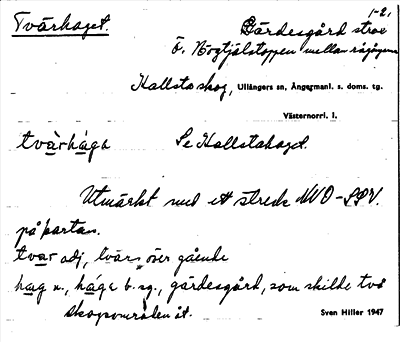 Tvärhaget. 1-2.
Gärdesgård strax
Ö. Högtjälstoppen mellan rågången
Kallsta skog, Ullångers sn, Ångermanl. s. doms. tg.
Västernorrl. l.
tvàrhága Se Kallstahaget.
Utmärkt med ett streck NVO-SSV.
på kartan.
tvar adj, tvärs över gående
hag n., hága b. sg., gärdesgård, som skilde två
skogsområden åt. Sven Hiller 1947